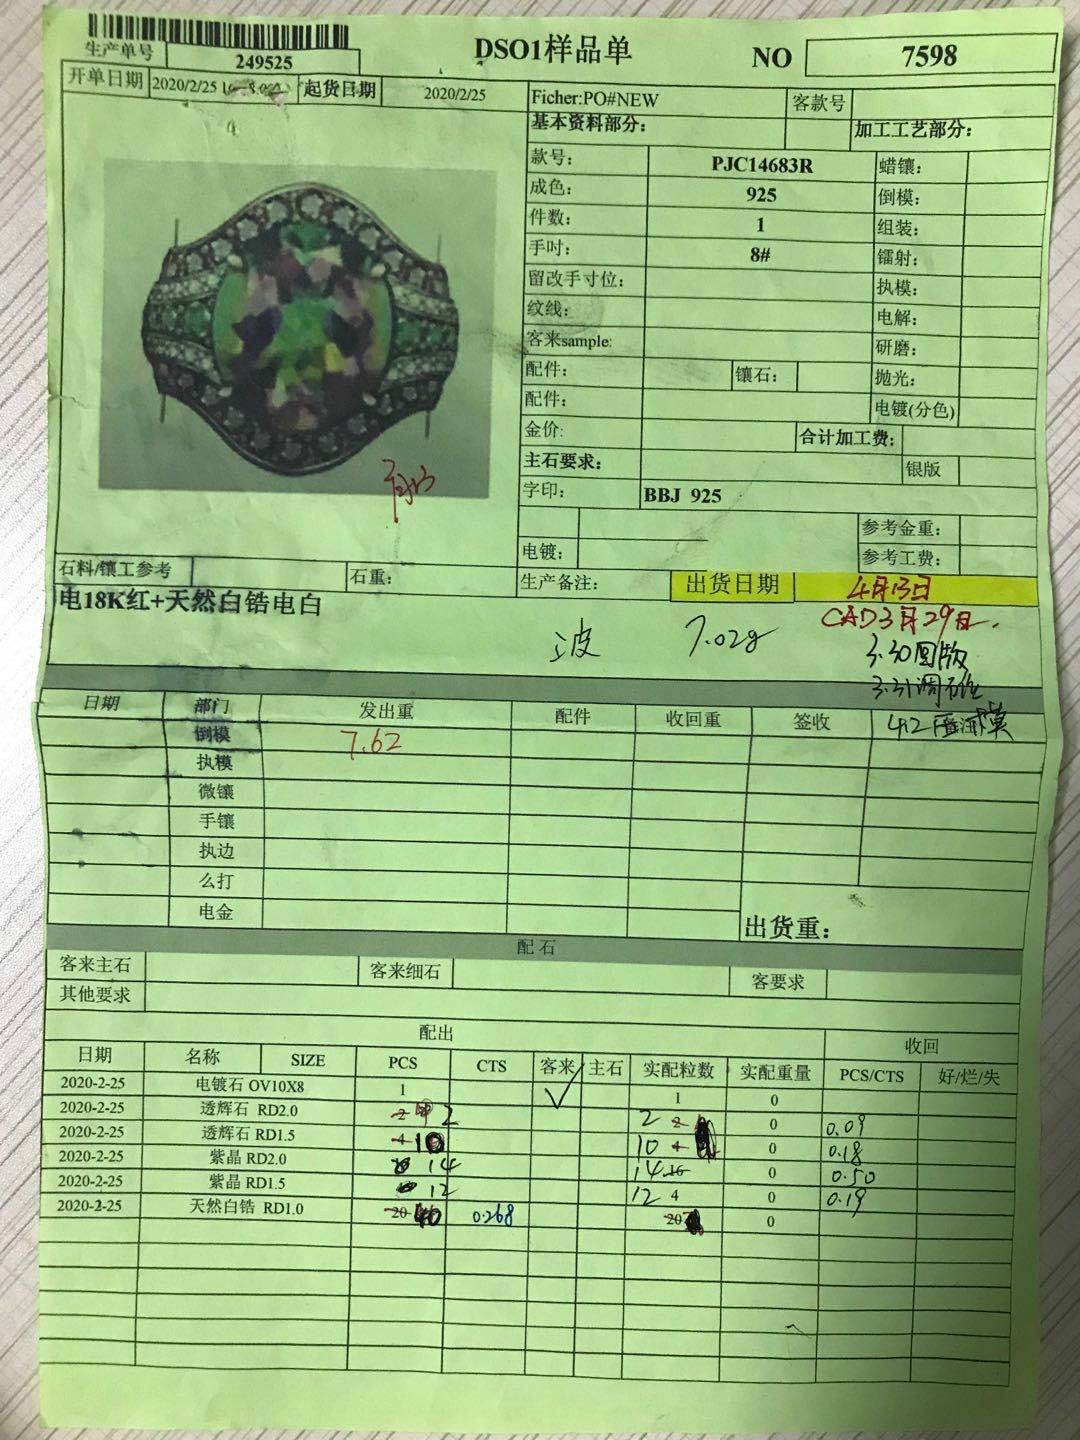 生产单号 249525
DSO1样品单 NO 7598
开单日期 2020/2/25 起货日期 2020/2/25
Ficher:PO#NEW 客款号
基本资料部分: 加工工艺部分:
款号: PJC14683R 蜡镶:
成色: 925 倒模:
件数: 1 组装:
手吋: 8# 镭射:
留改手寸位: 执模:
纹线: 电解:
客来sample: 研磨:
配件: 镶石: 抛光:
配件: 电镀(分色)
金价: 合计加工费:
主石要求: 银版
字印: BBJ 925
参考金重:
电镀: 参考工费:
石料/镶工参考 石重: 生产备注: 出货日期 4月13日
电18K红+天然白锆电白
CAD3月29日.
波 7.02g
3.30图版
3.31调
日期 部门 发出重 配件 收回重 签收 4.2 模
倒模 7.62
执模
微镶
手镶
执边
么打
电金
出货重:
配石
客来主石 客来细石 客要求
其他要求
配出 收回
日期 名称 SIZE PCS CTS 客来 主石 实配粒数 实配重量 PCS/CTS 好/烂/失
2020-2-25 电镀石 OV10X8 1 ✓ 1 0
2020-2-25 透辉石 RD2.0 2 2 2 2 0 0.09
2020-2-25 透辉石 RD1.5 4 10 10 4 0 0.18
2020-2-25 紫晶 RD2.0 14 14 16 0 0.50
2020-2-25 紫晶 RD1.5 12 12 4 0 0.19
2020-2-25 天然白锆 RD1.0 20 40 0.268 20 0